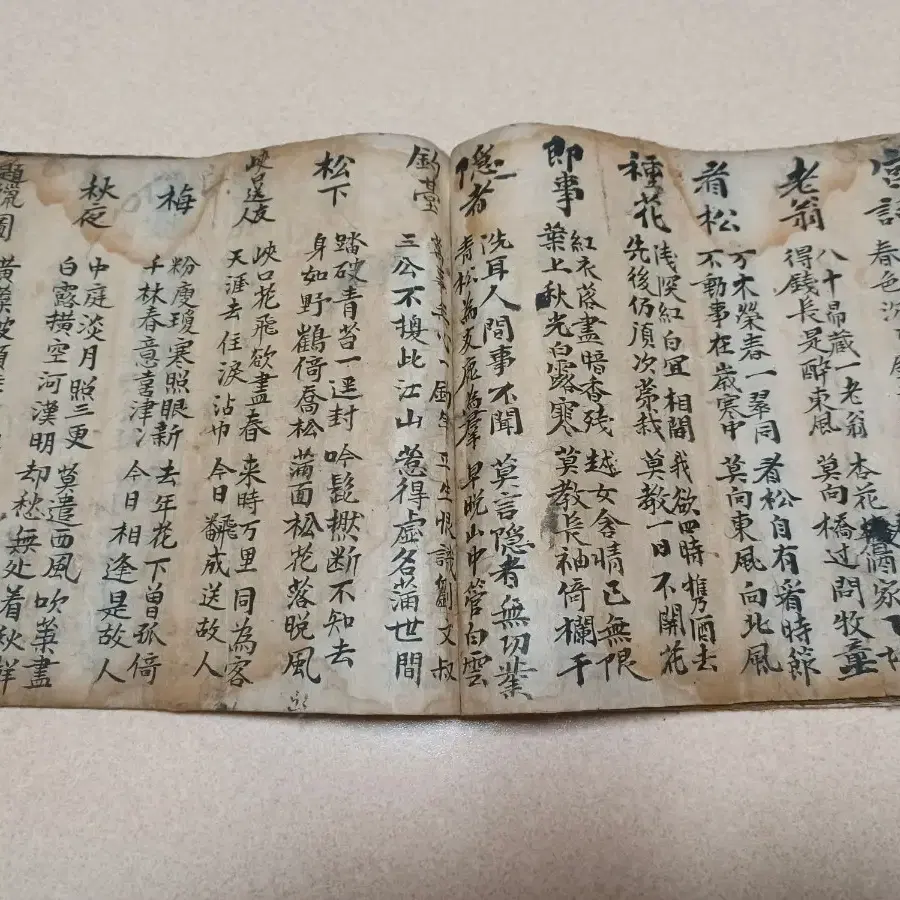 宮詞
春色沉
老翁
八十昂藏一老翁
得錢長是醉東風
杏花酒家
莫向橋過問牧童
看松
万木榮春一翠同
不動事在歲寒中
看松自有看時節
莫向東風向北風
種花
浅深紅白宜相間
先後仍須次第栽
我欲四時携酒去
莫教一日不開花
即事
紅衣落盡暗香残
葉上秋光白露寒
越女含情已無限
莫教長袖倚欄干
隱者
洗耳人間事不聞
青松為友鹿為羣
莫言隱者無功業
早晚山中管白雲
釣臺
萬事無心一釣竿
三公不換此江山
平生恨識劉文叔
惹得虛名滿世間
松下
踏破青苔一逕封
身如野鶴倚喬松
吟髭撚断不知去
滿面松花落晚風
峽口送友人
峽口花飛欲盡春
天涯去住淚沾巾
来時万里同為客
今日翻成送故人
梅
粉瘦瓊寒照眼新
千林春意喜津〻
去年花下曾孤倚
今日相逢是故人
秋夜
中庭淡月照三更
白露橫空河漢明
莫遣西風吹葉盡
却愁無处着秋
題
黃葉